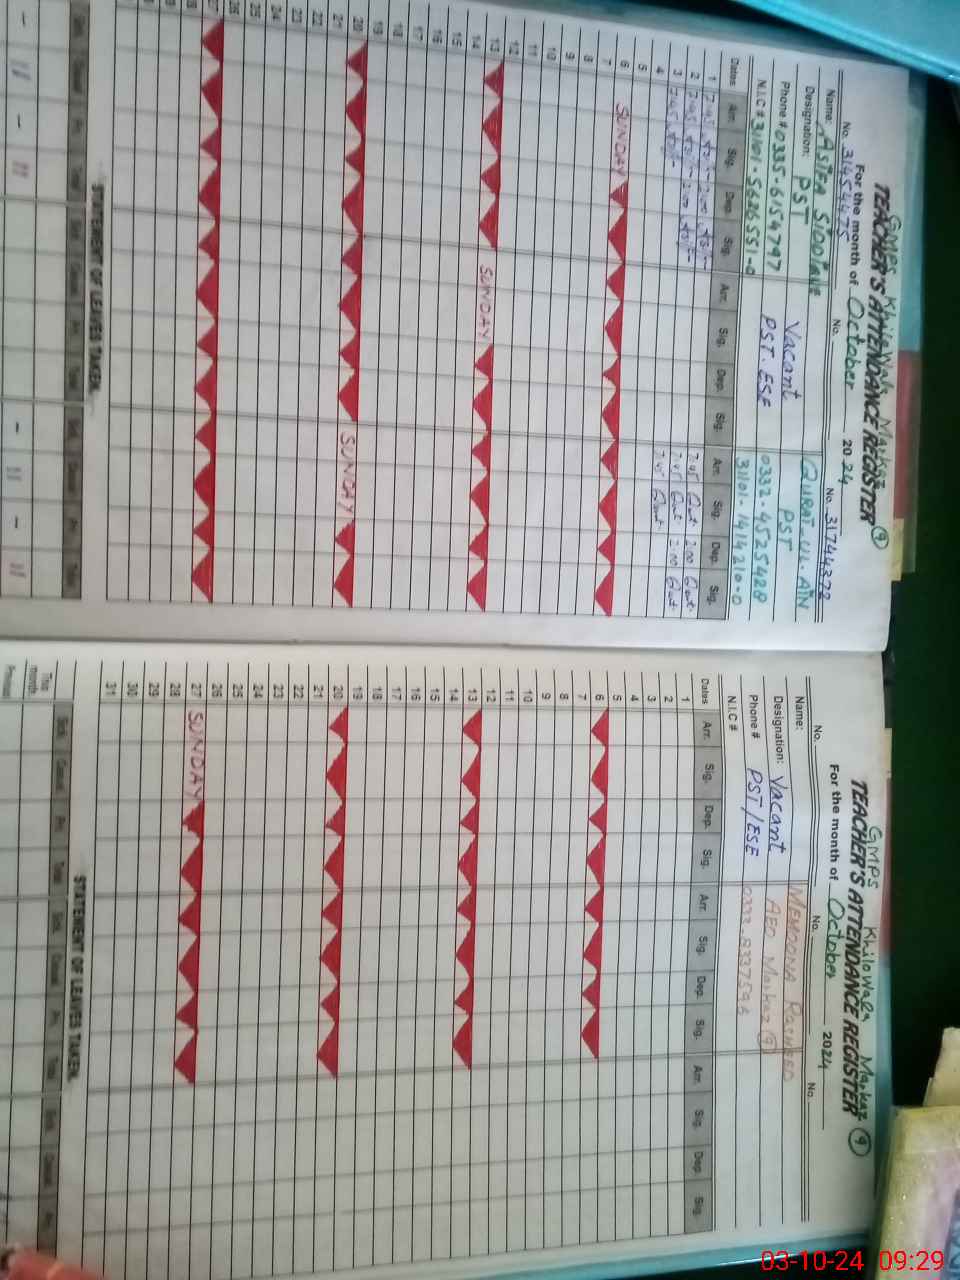 GMPS Khilowala Markaz (9)
TEACHER'S ATTENDANCE REGISTER
For the month of October 2024
No. 31454475 No. No. 31744372
Name: ASIFA SIDDIQUE QURAT-UL-AIN
Designation: PST Vacant PST
Phone # 0335-6154797 PST-ESE 0332-4525428
N.I.C # 31101-5686551-0 31101-1414210-0
Dates Arr. Sig. Dep. Sig. Arr. Sig. Dep. Sig. Arr. Sig. Dep. Sig.
1 7:45 2:00
2 7:45 2:00 7:45 Qurat 2:00 Qurat
3 7:45 7:45 Qurat 2:00 Qurat
4 7:45 Qurat
5
6 SUNDAY
7
8
9
10
11
12
13 SUNDAY
14
15
16
17
18
19
20 SUNDAY
21
22
23
24
25
26
27
STATEMENT OF LEAVES TAKEN
GMPS Khilowala Markaz (9)
TEACHER'S ATTENDANCE REGISTER
For the month of October 2024
No. No. No.
Name: MEMOONA RASHEED
Designation: Vacant AEO Markaz (9)
Phone # PST/ESE
N.I.C #
Dates Arr. Sig. Dep. Sig. Arr. Sig. Dep. Sig. Arr. Sig. Dep. Sig.
1
2
3
4
5
6
7
8
9
10
11
12
13
14
15
16
17
18
19
20
21
22
23
24
25
26
27 SUNDAY
28
29
30
31
STATEMENT OF LEAVES TAKEN.
This month
Sick Casual Pri. Total Sick Casual Pri. Total Sick Casual Pri.
Previous
03-10-24 09:29